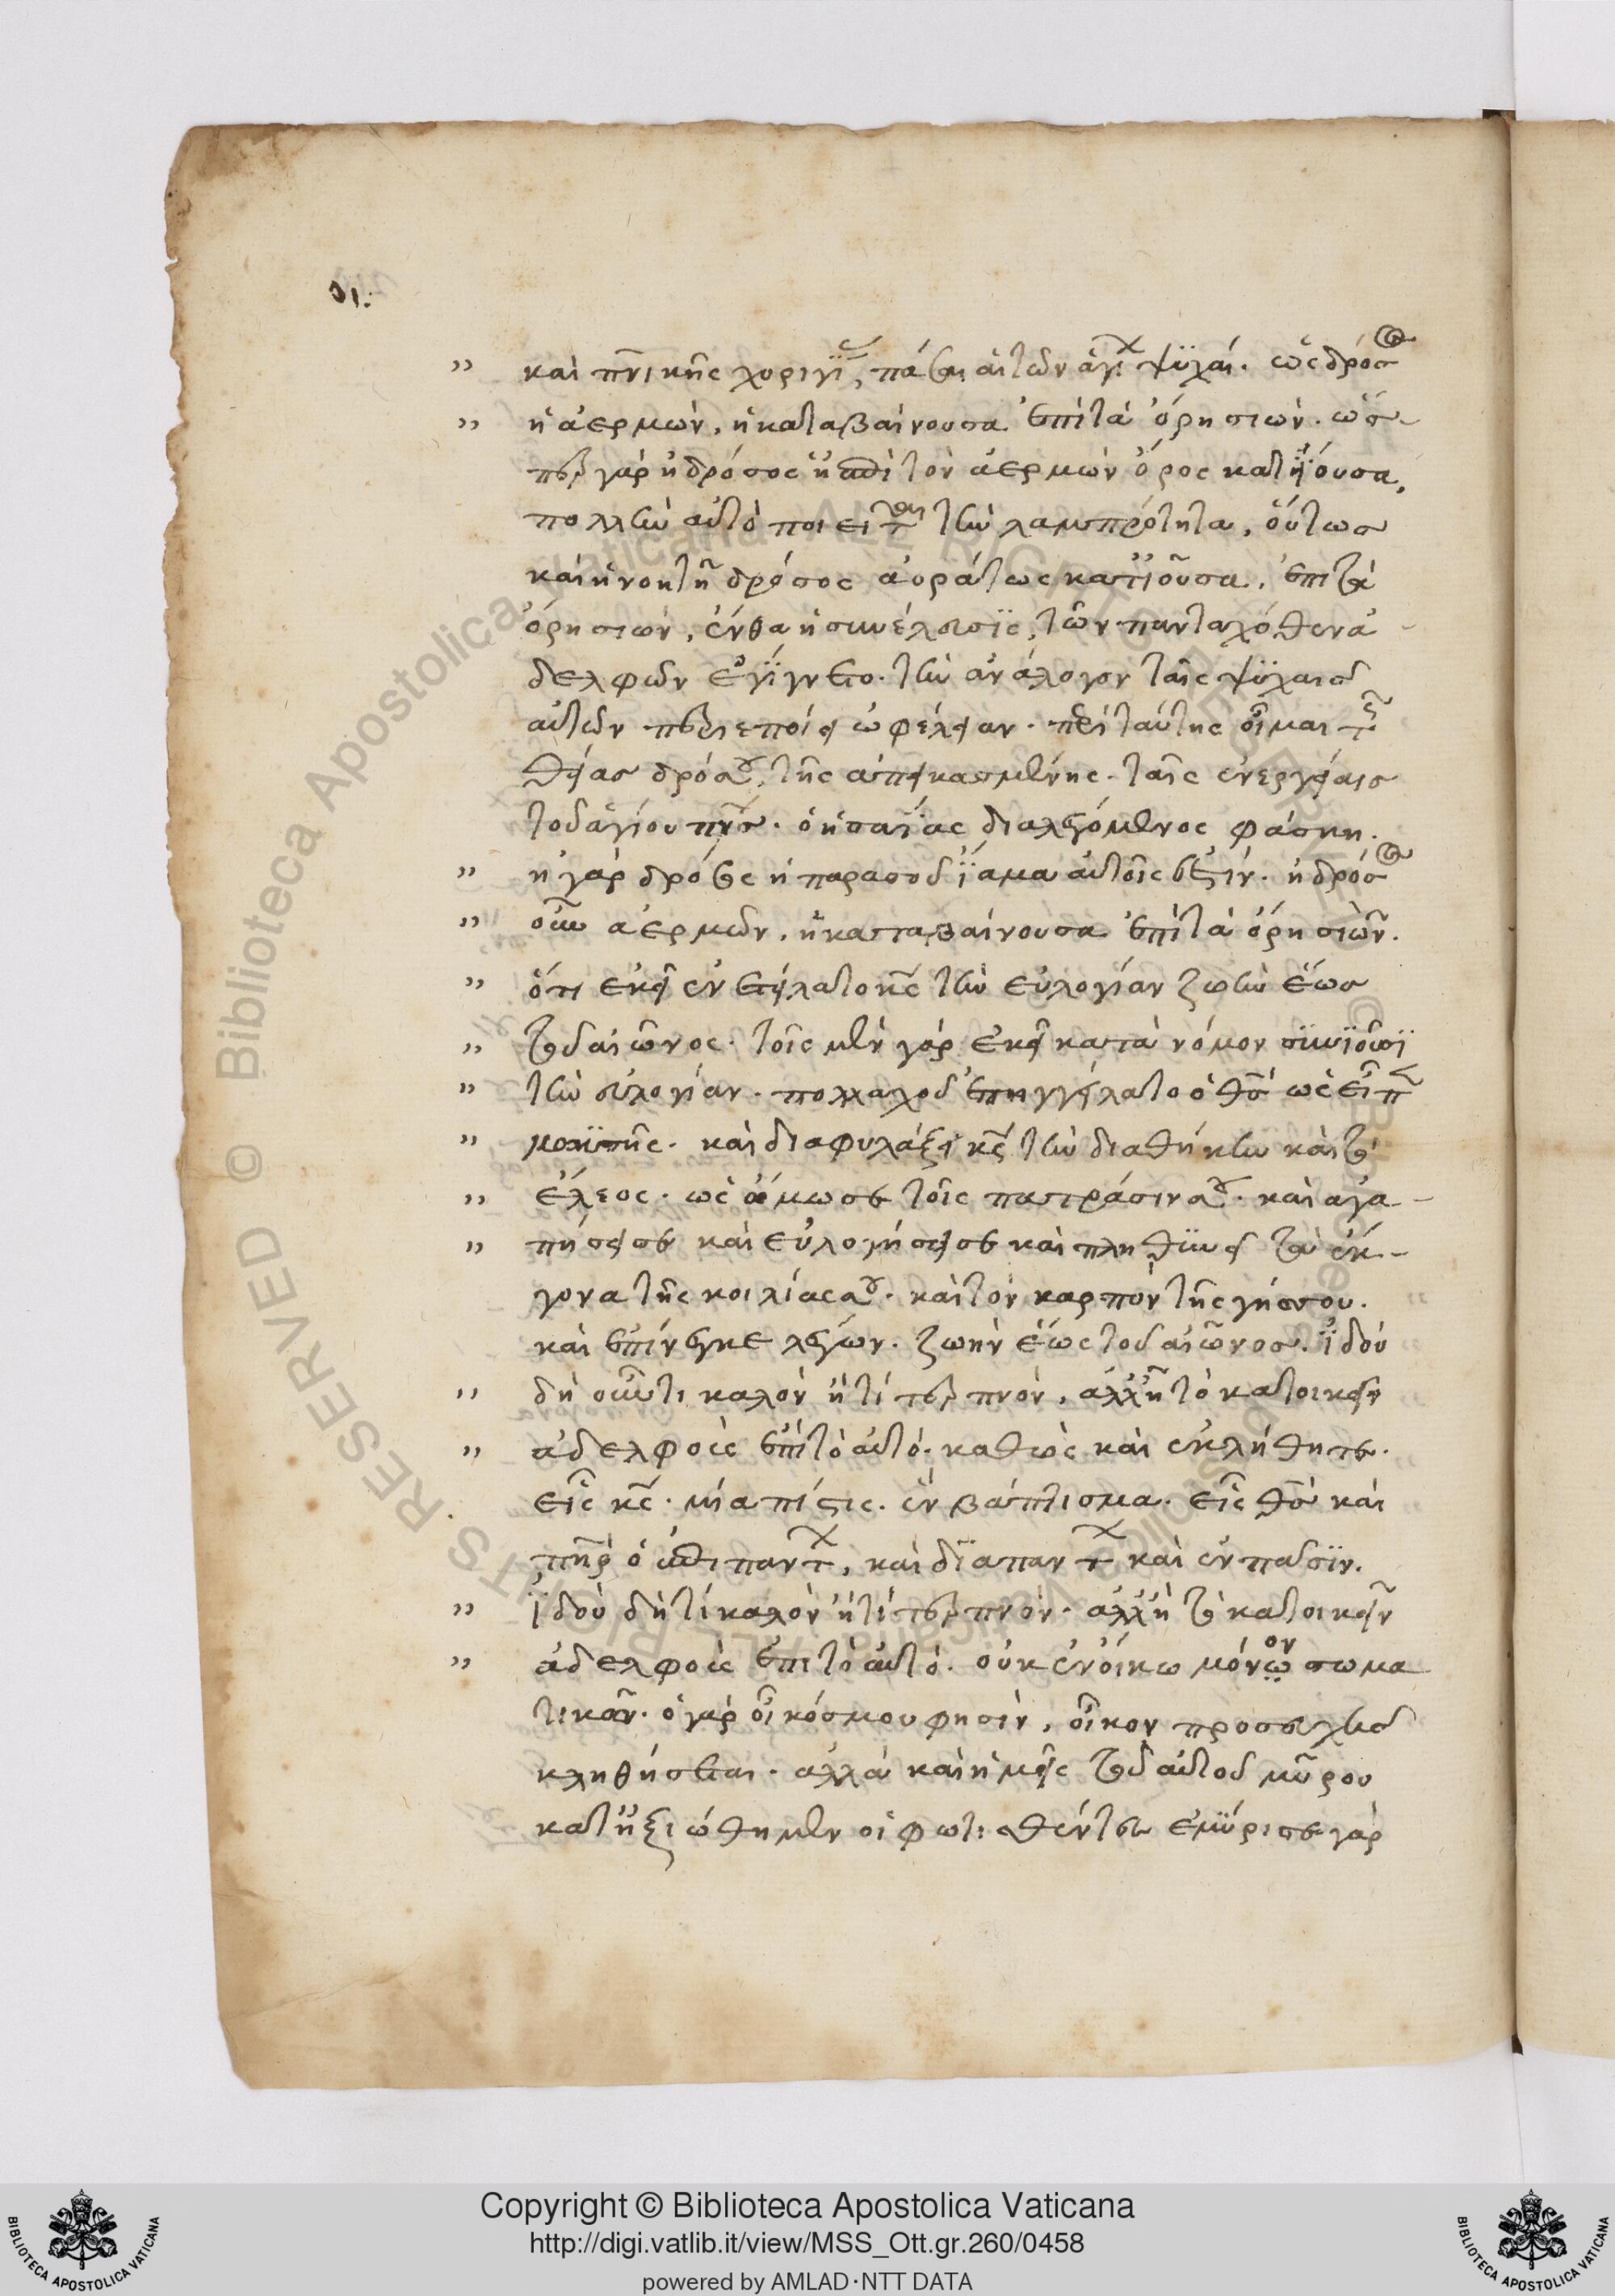 καὶ πνικῆς χορηγίας, πᾶσαι αἱ τῶν ἁγί ψϋχαί. ὡς δρόσος
ἡ ἀερμὼν, ἡ καταβαίνουσα ἐπὶ τὰ ὄρη σιών. ὥσ-
περ γὰρ ἡ δρόσος ἡ ἐπὶ τὸν ἀερμὼν ὄρος κατϊοῦσα,
πολλὴν αὐτὸ ποιεῖται τὴν λαμπρότητα, οὕτως
καὶ ἡ νοητὴ δρόσος ἀοράτως κατϊοῦσα, ἐπὶ τὰ
ὄρη σιὼν, ἔνθα ἡ συνέλευσϊς, τῶν πανταχόθεν ἀ-
δελφῶν ἐγίγνετο. τὴν ἀνάλογον ταῖς ψϋχαῖς
αὐτῶν περιεποίει ὠφέλειαν. περὶ ταύτης οἶμαι τῆς
θείας δρόσου, τῆς ἀπεικασμένης ταῖς ἐνεργείαις
τοῦ ἁγίου πνς. ὁ ἡσαΐας διαλεγόμενος φάσκει.
ἡ γὰρ δρόσος ἡ παρὰ σοῦ ἴαμα αὐτοῖς ἐστίν. ἡ δρόσος
οὖν ἀερμῶν, ἡ καταβαίνουσα ἐπὶ τὰ ὄρη σιὼν.
ὅτι ἐκεῖ ἐνετείλατο κς τὴν εὐλογίαν ζωὴν ἕως
τοῦ αἰῶνος. τοῖς μὲν γὰρ ἐκεῖ κατὰ νόμον συνϊοῦσϊ
τὴν εὐλογίαν. πολλαχοῦ ἐπηγγείλατο ὁ θς ὡς εἶπε
μωϋσῆς. καὶ διαφυλάξει κς τὴν διαθήκην καὶ τὸ
ἔλεος. ὡς ὤμωσε τοῖς πατράσιν σου. καὶ ἀγα-
πήσει σε καὶ εὐλογήσει σε καὶ πληθϋνεῖ τὰ ἔκ-
γονα τῆς κοιλίας σου. καὶ τὸν καρπὸν τῆς γῆς σου.
καὶ ἐπήνεγκε λέγων. ζωὴν ἕως τοῦ αἰῶνος. ἰδοὺ
δὴ οὖν τι καλὸν ἢ τί τερπνὸν, ἀλλ' ἢ τὸ κατοικεῖν
ἀδελφοὺς ἐπὶ τὸ αὐτό. καθὼς καὶ ἐκλήθητε.
εἷς κς. μία πίστις. ἓν βάπτισμα. εἷς θς καὶ
πηρ ὁ ἐπὶ παντ, καὶ δϊὰ παντ καὶ ἐν πᾶσϊν.
ἰδοὺ δὴ τί καλὸν ἢ τί τερπνὸν. ἀλλ' ἢ τὸ κατοικεῖν
ἀδελφοὺς ἐπὶ τὸ αὐτό. οὐκ ἐν οἴκω μόνον σωμα
τικῶν. ὁ γὰρ οἶκός μου φησὶν, οἶκον προσευχῆς
κληθήσεται. ἀλλὰ καὶ ἡμεῖς τοῦ αὐτοῦ μύρου
κατηξιώθημεν οἱ φωτισθέντες ἐμύρισε γὰρ